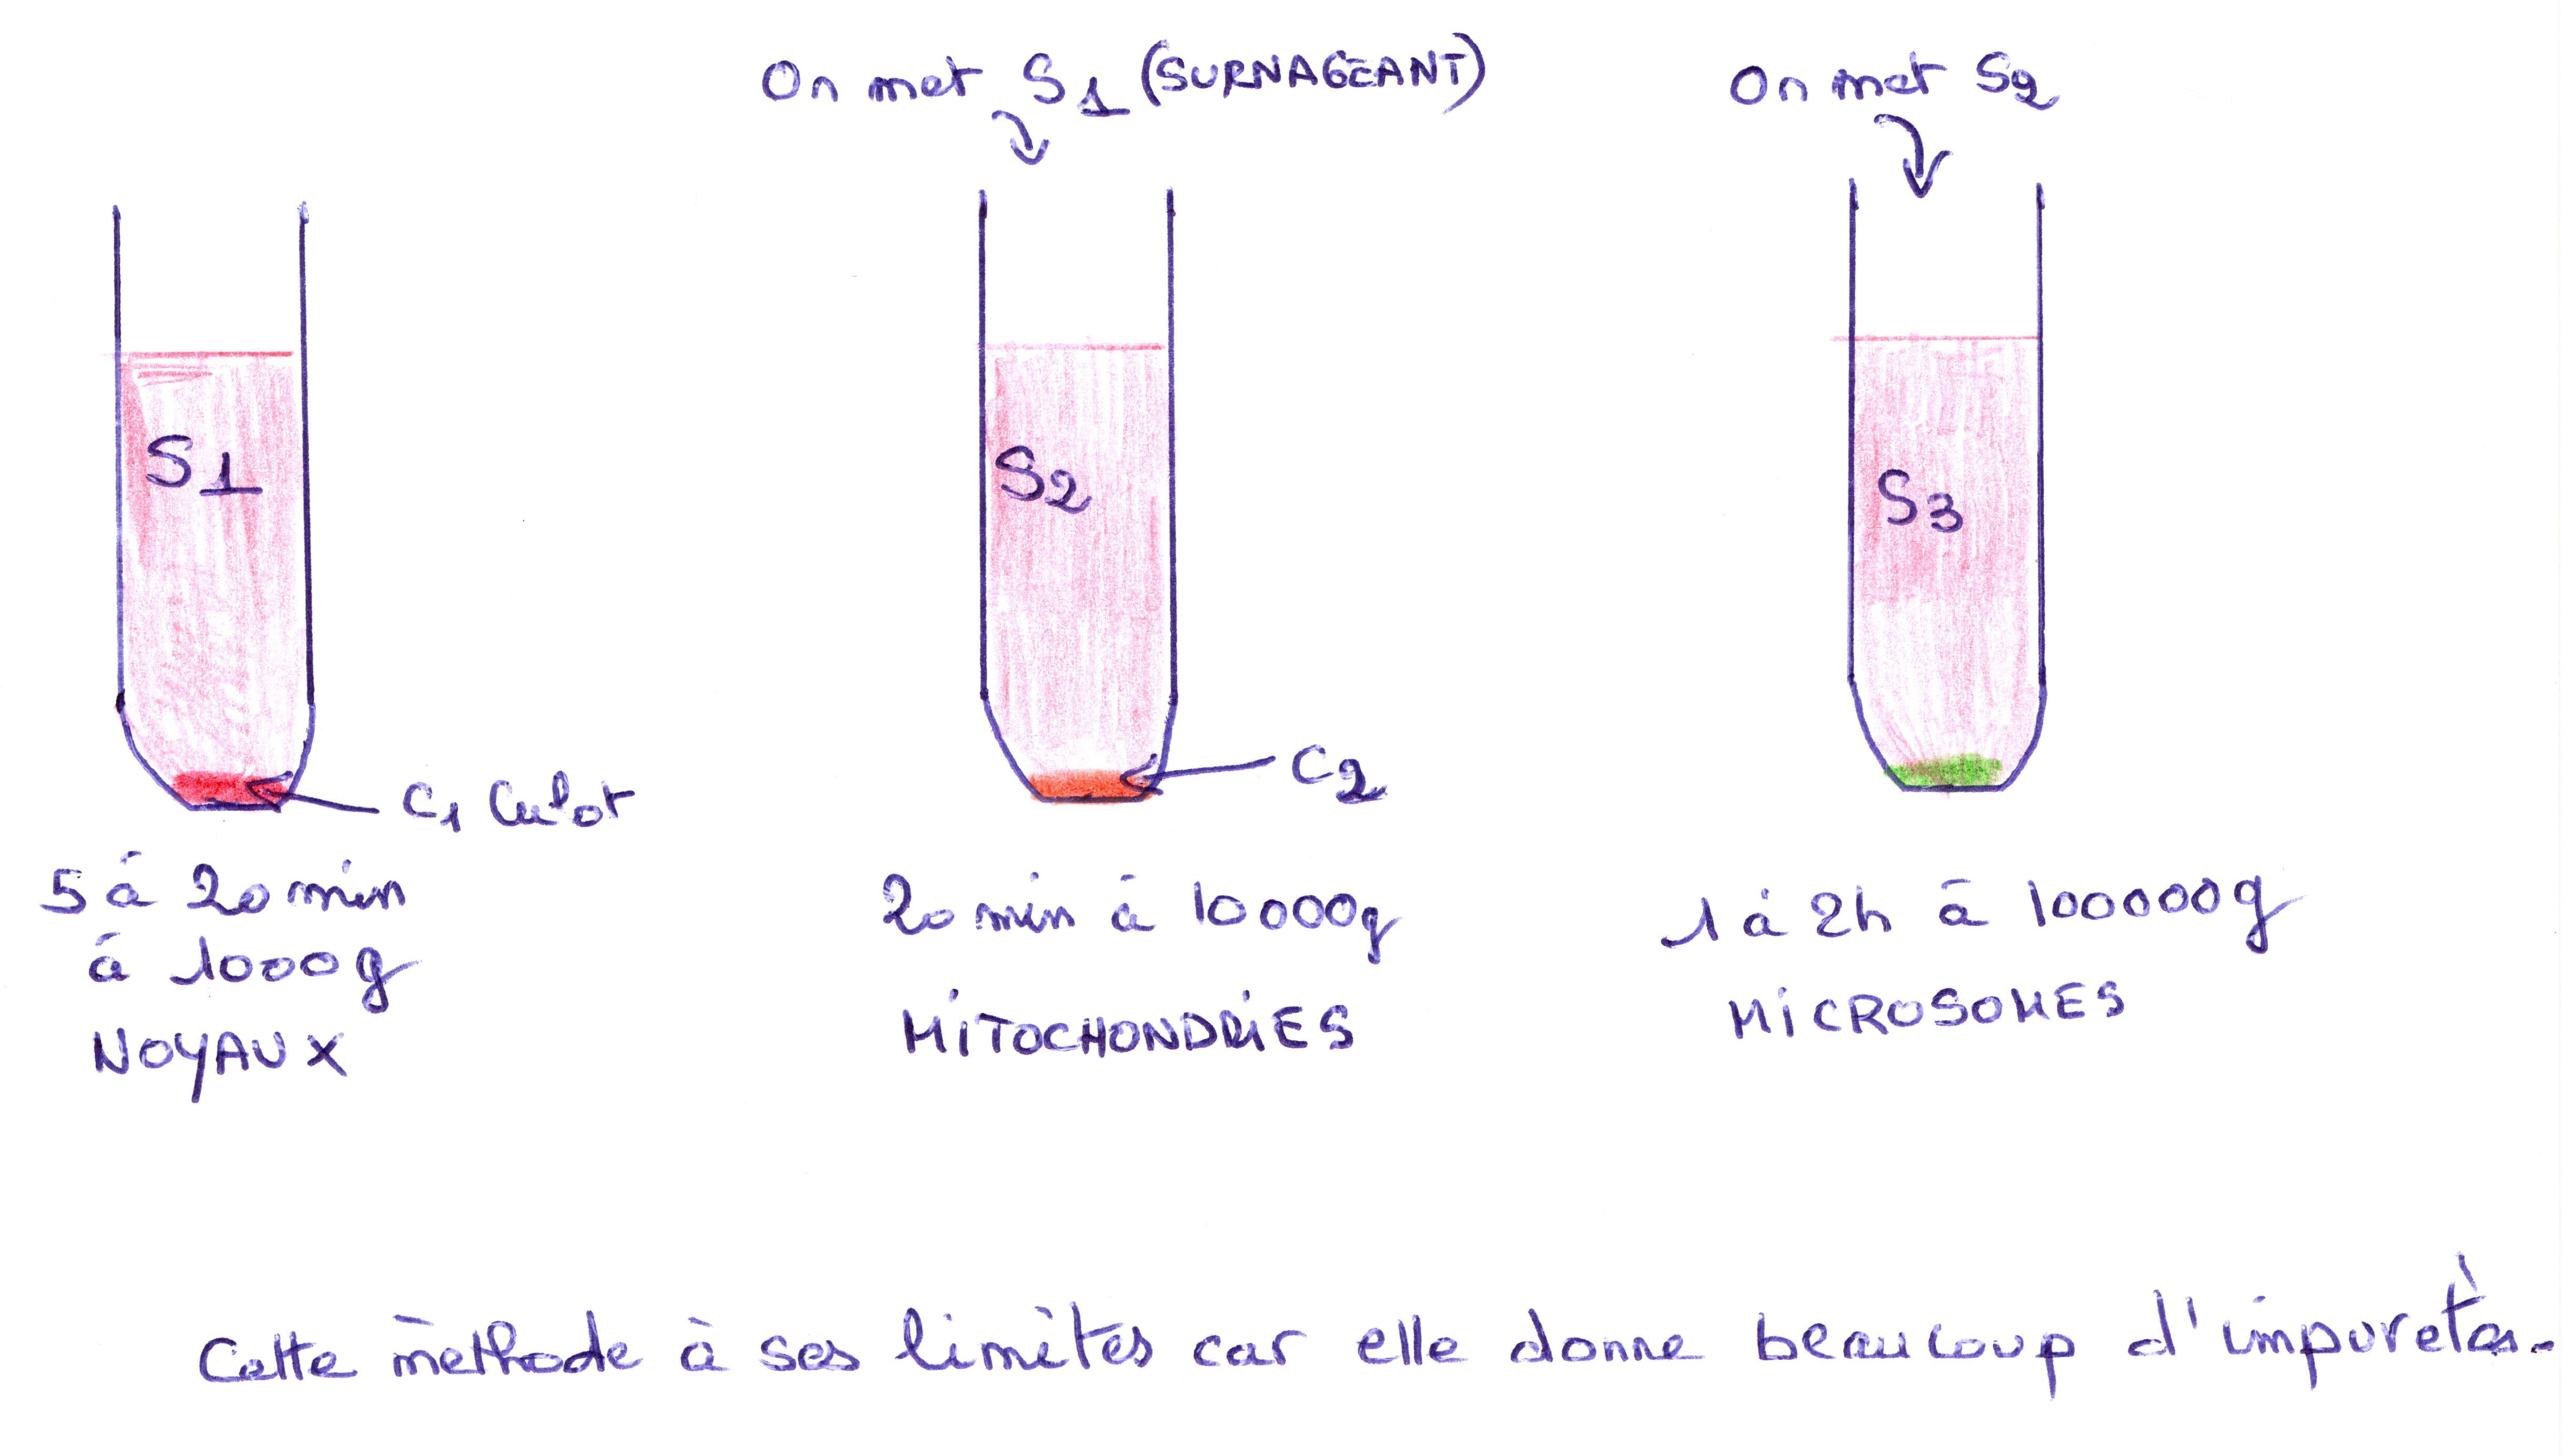 On met S1 (SURNAGEANT)
On met S2
S1
S2
S3
C1 Culot
C2
5 à 20 min
à 1000g
NOYAUX
20 min à 10000g
MITOCHONDRIES
1 à 2h à 100000g
MICROSOMES
Cette méthode à ses limites car elle donne beaucoup d'impuretés.